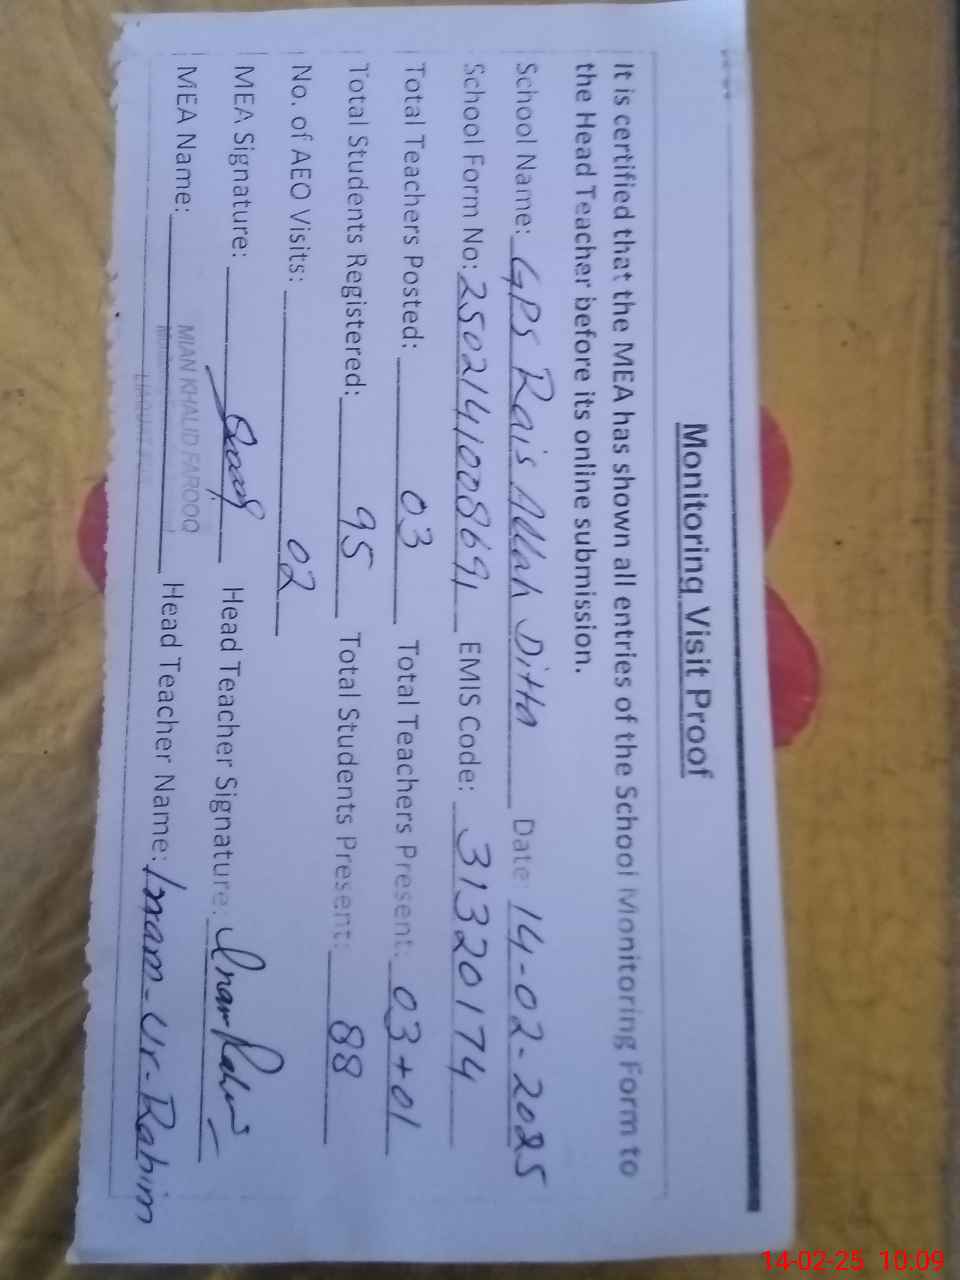 Monitoring Visit Proof
It is certified that the MEA has shown all entries of the School Monitoring Form to
the Head Teacher before its online submission.
School Name: GPS Rais Allah Ditta Date: 14-02-2025
School Form No: 2502141008691 EMIS Code: 31320174
Total Teachers Posted: 03 Total Teachers Present: 03+01
Total Students Registered: 95 Total Students Present: 88
No. of AEO Visits: 02
MEA Signature: Head Teacher Signature:
MEA Name: MIAN KHALID FAROOQ Head Teacher Name: Imam-Ur-Rahim
14-02-25 10:09